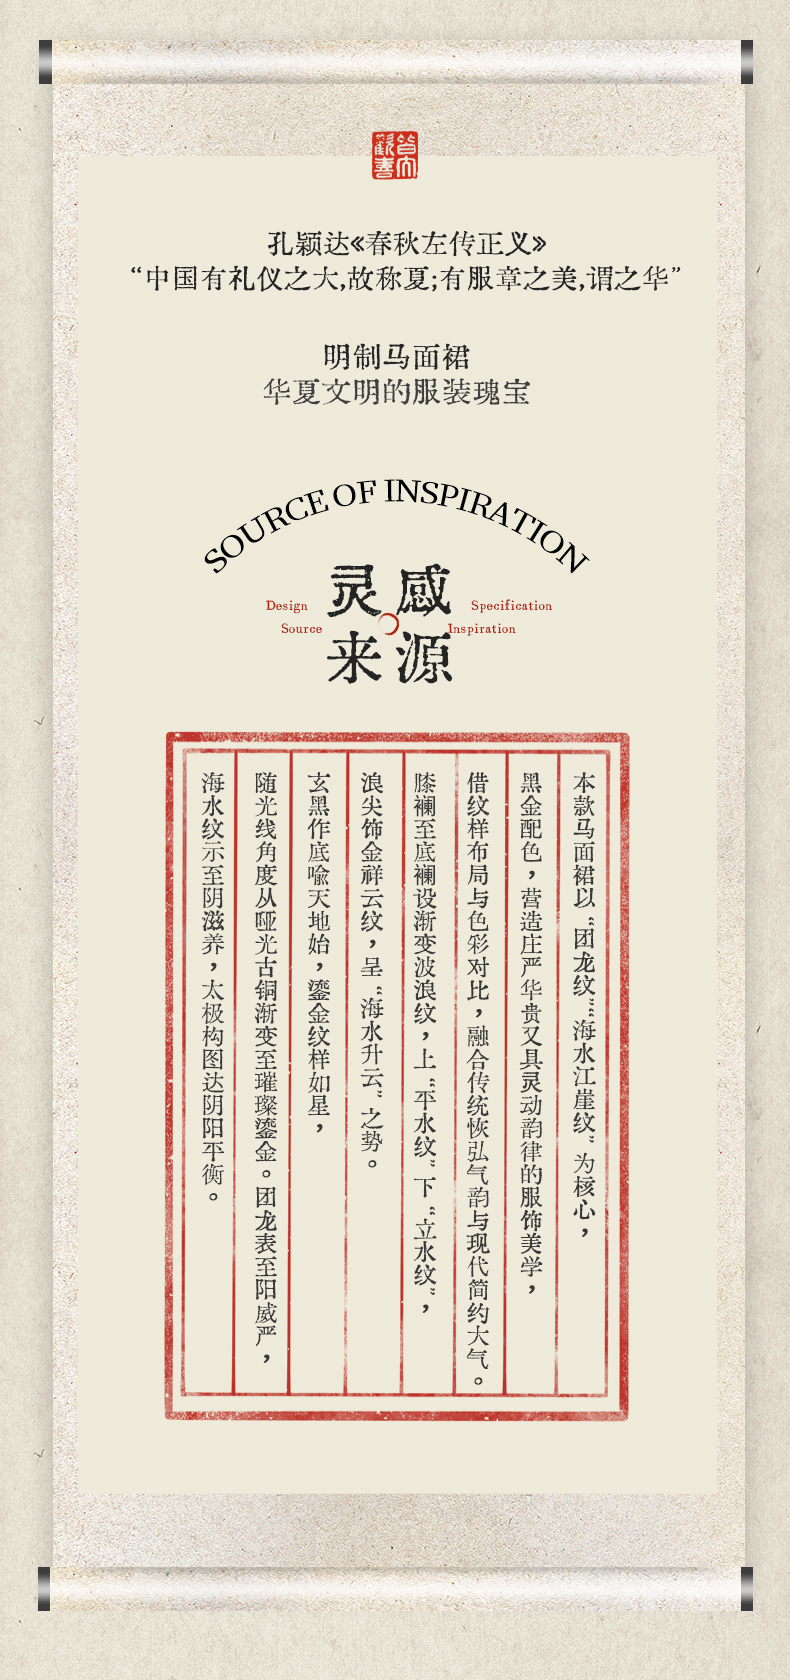 孔颖达《春秋左传正义》
“中国有礼仪之大,故称夏;有服章之美,谓之华”
明制马面裙
华夏文明的服装瑰宝
SOURCE OF INSPIRATION
感源
灵来
Design
Source
Specification
Inspiration
本款马面裙以“团龙纹”“海水江崖纹”为核心，
黑金配色，营造庄严华贵又具灵动韵律的服饰美学，
借纹样布局与色彩对比，融合传统恢弘气韵与现代简约大气。
膝襕至底襕设渐变波浪纹，上“平水纹”下“立水纹”，
浪尖饰金祥云纹，呈“海水升云”之势。
玄黑作底喻天地始，鎏金纹样如星，
随光线角度从哑光古铜渐变至璀璨鎏金。团龙表至阳威严，
海水纹示至阴滋养，太极构图达阴阳平衡。